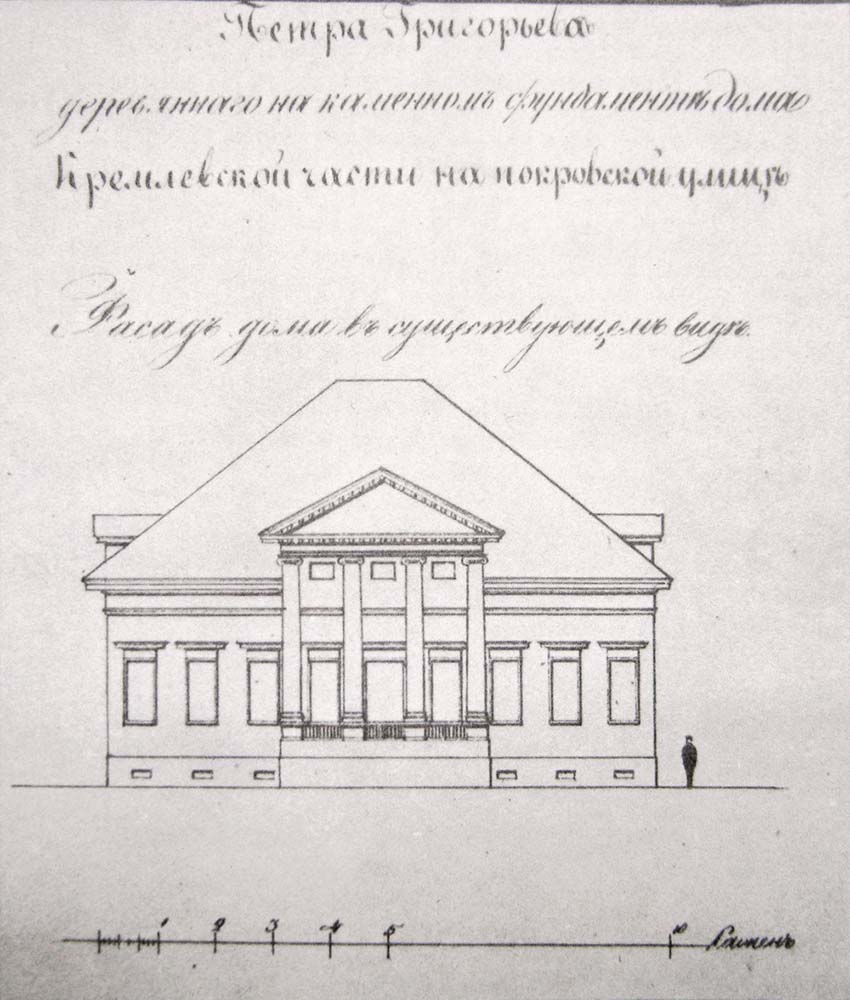 Петра Григорьева
деревяннаго на каменномъ фундаментѣ дома
Кремлевской части на покровской улицѣ
Фасадъ дома въ существующемъ видѣ.
1 2 3 4 5 10 Сажень